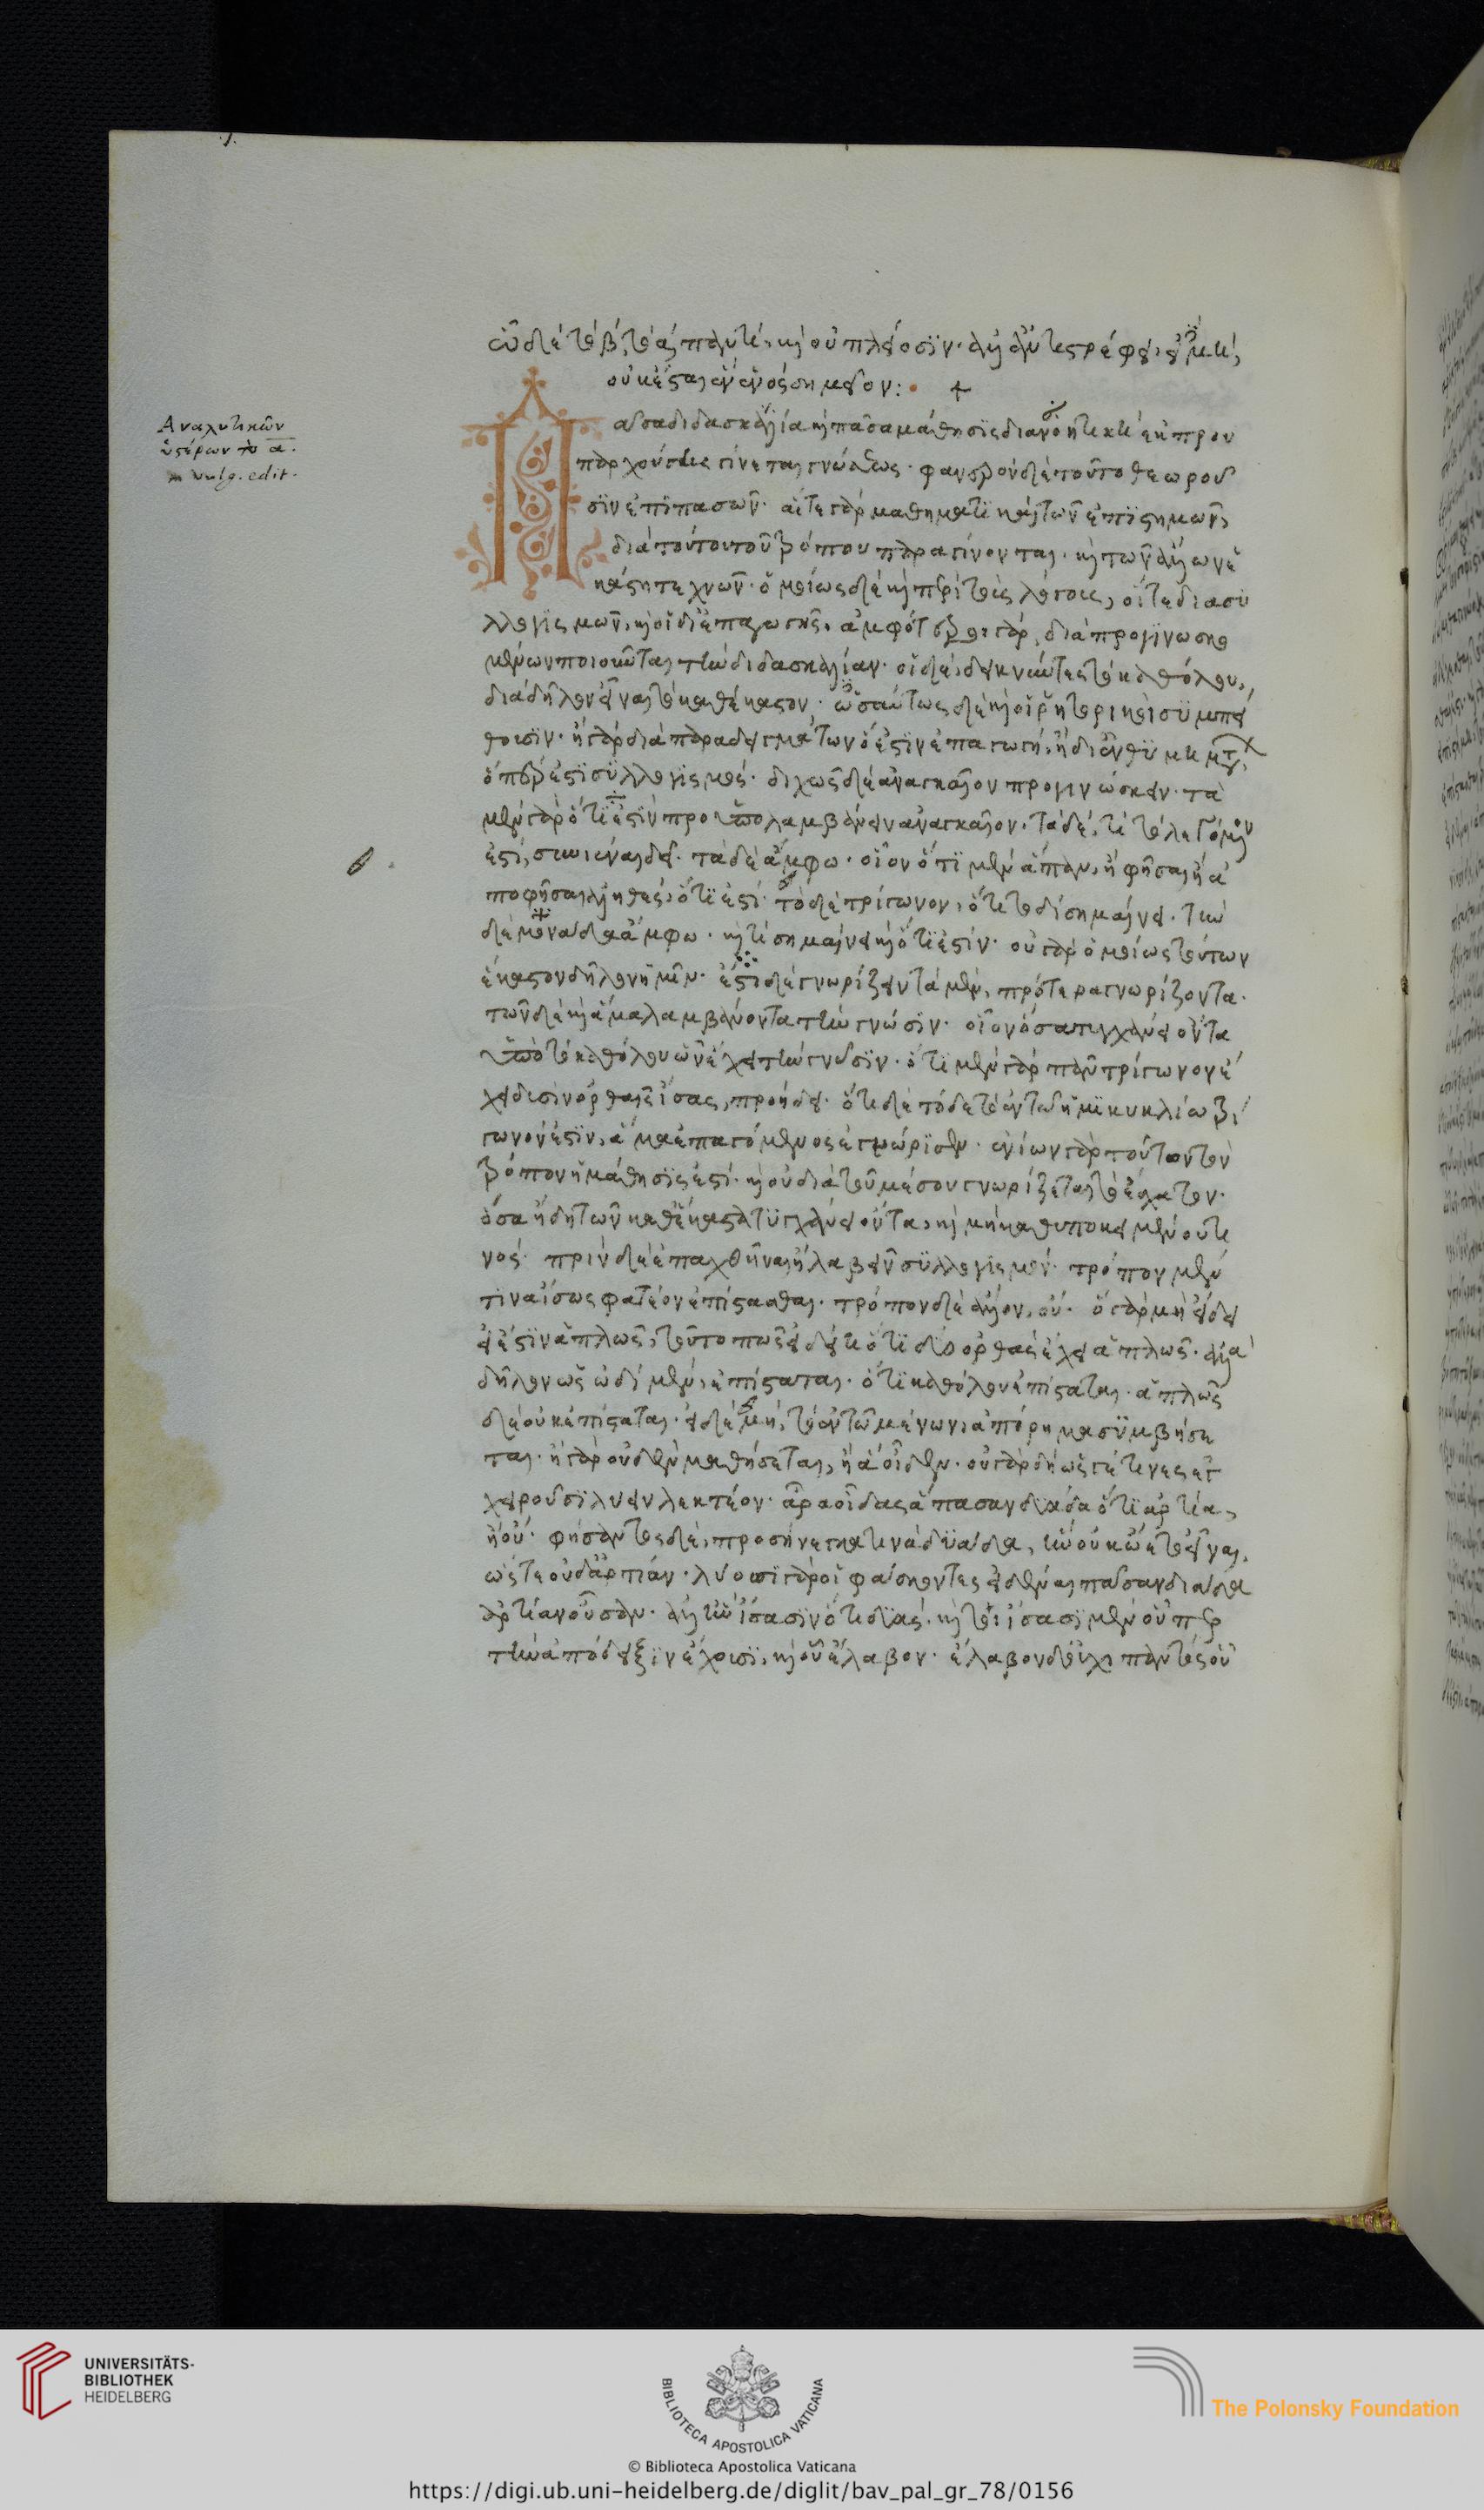 Αναλυτικῶν
ὑστέρων τὸ α.
in vulg. edit.
ὧδε τὸ β, τὸ α παντί, καὶ οὐ πλέοσιν· ἀλλ' ἀντιστρέφει, εἰ δὲ μή,
οὐκ ἔσται ἓν ἑνὸς σημεῖον: +
Πᾶσα διδασκαλία καὶ πᾶσα μάθησις διανοητικὴ ἐκ πρου
παρχούσης γίνεται γνώσεως· φανερὸν δὲ τοῦτο θεωροῦ
σιν ἐπὶ πασῶν· αἵ τε γὰρ μαθηματικαὶ τῶν ἐπιστημῶν,
διὰ τούτου τοῦ τρόπου παραγίνονται· καὶ τῶν ἄλλων ἑ
κάστη τεχνῶν· ὁμοίως δὲ καὶ περὶ τοὺς λόγους, οἵ τε διὰ συ
λλογισμῶν, καὶ οἱ δι' ἐπαγωγῆς· ἀμφότεροι γὰρ, διὰ προγινωσκο
μένων ποιοῦνται τὴν διδασκαλίαν· οἱ δὲ, δεικνύντες τὸ καθόλου,
διὰ δῆλον εἶναι τὸ καθέκαστον· ὡσαύτως δὲ καὶ οἱ ῥητορικοὶ συμπεί
θουσιν· ἢ γὰρ διὰ παραδειγμάτων ὅ ἐστιν ἐπαγωγή, ἢ δι' ἐνθυμημάτων,
ὅπερ ἐστὶ συλλογισμός· διχῶς δὲ ἀναγκαῖον προγινώσκειν· τὰ
μὲν γὰρ ὅτι ἐστὶν προϋπολαμβάνειν ἀναγκαῖον· τὰ δὲ, τί τὸ λεγόμενόν
ἐστι, συνιέναι δεῖ· τὰ δὲ ἄμφω· οἷον ὅτι μὲν ἅπαν, ἢ φῆσαι ἢ ἀ
ποφῆσαι ἀληθές, ὅτι ἐστί· τὸ δὲ τρίγωνον, ὅτι τοδὶ σημαίνει· τὴν
δὲ μονάδα ἄμφω· καὶ τί σημαίνει καὶ ὅτι ἐστίν· οὐ γὰρ ὁμοίως τούτων
ἕκαστον δῆλον ἡμῖν· ἔστι δὲ γνωρίζειν τὰ μὲν, πρότερα γνωρίζοντα·
τῶν δὲ καὶ ἅμα λαμβάνοντα τὴν γνῶσιν· οἷον ὅσα τυγχάνει ὄντα
ὑπὸ τὸ καθόλου ὧν ἔχει τὴν γνῶσιν· ὅτι μὲν γὰρ πᾶν τρίγωνον ἔ
χει δυσὶν ὀρθαῖς ἴσας, προήδει· ὅτι δὲ τόδε τὸ ἐν τῷ ἡμικυκλίῳ τρί
γωνόν ἐστιν, ἅμα ἐπαγόμενος ἐγνώρισεν· ἐνίων γὰρ τοῦτον τὸν
τρόπον ἡ μάθησίς ἐστι· καὶ οὐ διὰ τοῦ μέσου γνωρίζεται τὸ ἔσχατον·
ὅσα ἤδη τῶν καθ' ἕκαστα τυγχάνει ὄντα, καὶ μὴ καθ' ὑποκειμένου τι
νός· πρὶν δὲ ἐπαχθῆναι ἢ λαβεῖν συλλογισμόν· τρόπον μέν
τινα ἴσως φατέον ἐπίστασθαι· τρόπον δὲ ἄλλον, οὔ· ὃ γὰρ μὴ ᾔδει
εἰ ἔστιν ἁπλῶς, τοῦτο πῶς ᾔδει ὅτι δύο ὀρθὰς ἔχει ἁπλῶς· ἀλλὰ
δῆλον ὡς ὡδὶ μὲν, ἐπίσταται· ὅτι καθόλου ἐπίσταται· ἁπλῶς
δὲ οὐκ ἐπίσταται· εἰ δὲ μή, τὸ ἐν τῷ μένωνι ἀπόρημα συμβήσε
ται· ἢ γὰρ οὐδὲν μαθήσεται, ἢ ἃ οἶδεν· οὐ γὰρ δὴ ὥς γέ τινες ἐγ
χειροῦσι λύειν λεκτέον· ἆρα οἶδας ἅπασαν δυάδα ὅτι ἀρτία,
ἢ οὔ· φήσαντος δὲ, προσήνεγκάν τινα δυάδα, ἣν οὐκ ᾤετο εἶναι,
ὥστε οὐδ' ἀρτίαν· λύουσι γὰρ οὐ φάσκοντες εἰδέναι πᾶσαν δυάδα
ἀρτίαν οὖσαν· ἀλλ' ἣν ἴσασιν ὅτι δυάς· καὶ τοι ἴσασι μὲν οὗπερ
τὴν ἀπόδειξιν ἔχουσι, καὶ οὗ ἔλαβον· ἔλαβον δ' οὐχὶ παντὸς οὗ
UNIVERSITÄTS-
BIBLIOTHEK
HEIDELBERG
BIBLIOTECA APOSTOLICA VATICANA
The Polonsky Foundation
© Biblioteca Apostolica Vaticana
https://digi.ub.uni-heidelberg.de/diglit/bav_pal_gr_78/0156